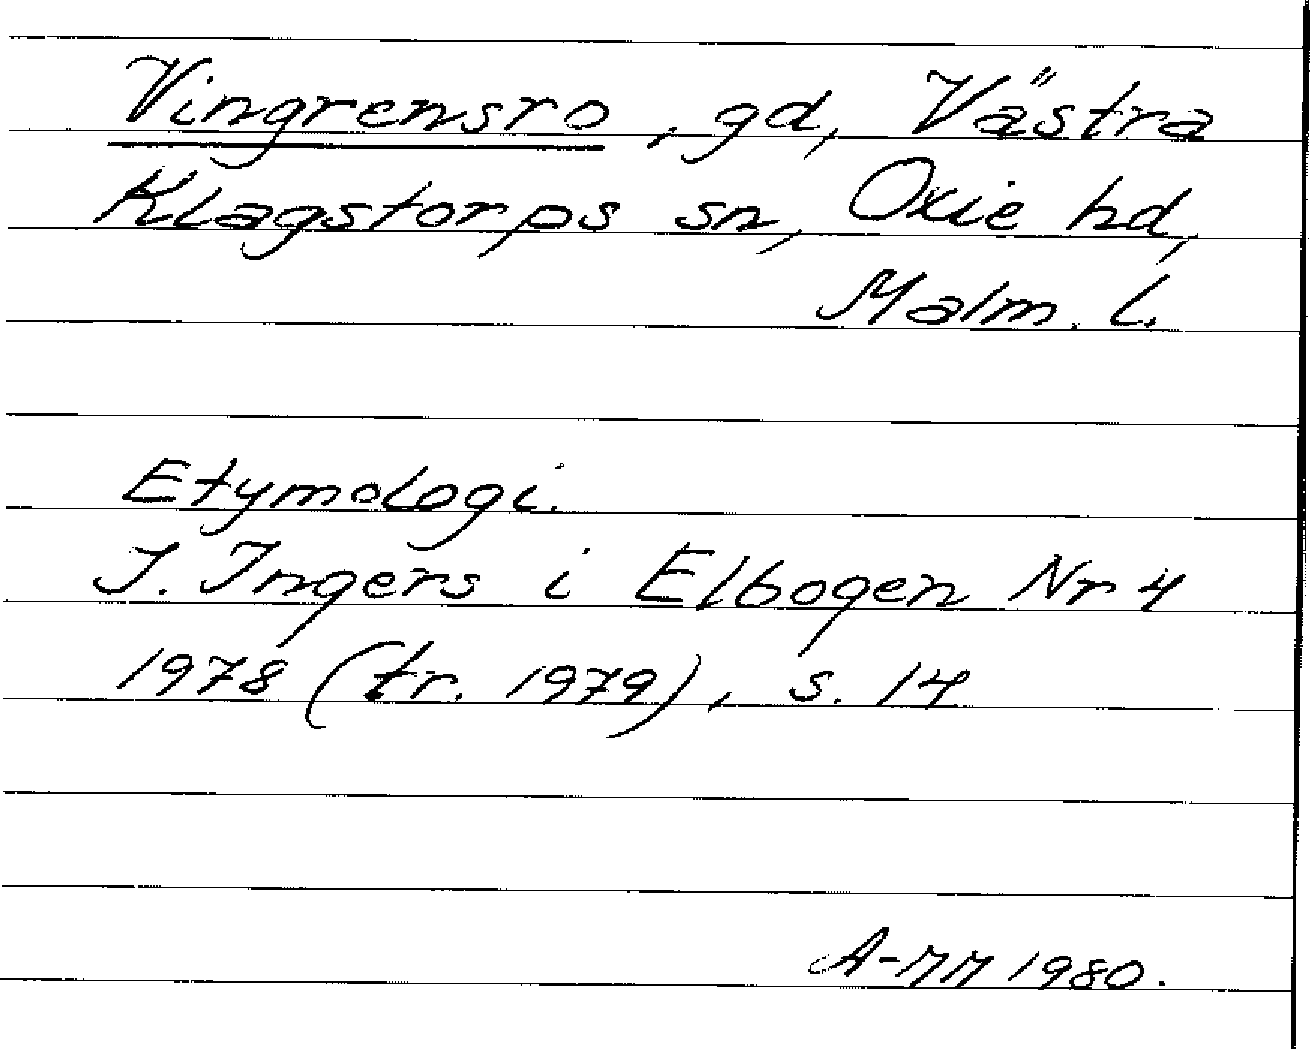 Vingrensro, gd, Västra
Klagstorps sn, Oxie hd,
Malm. l.
Etymologi.
I. Ingers i Elbogen Nr 4
1978 (tr. 1979), s. 14
A-MM 1980.